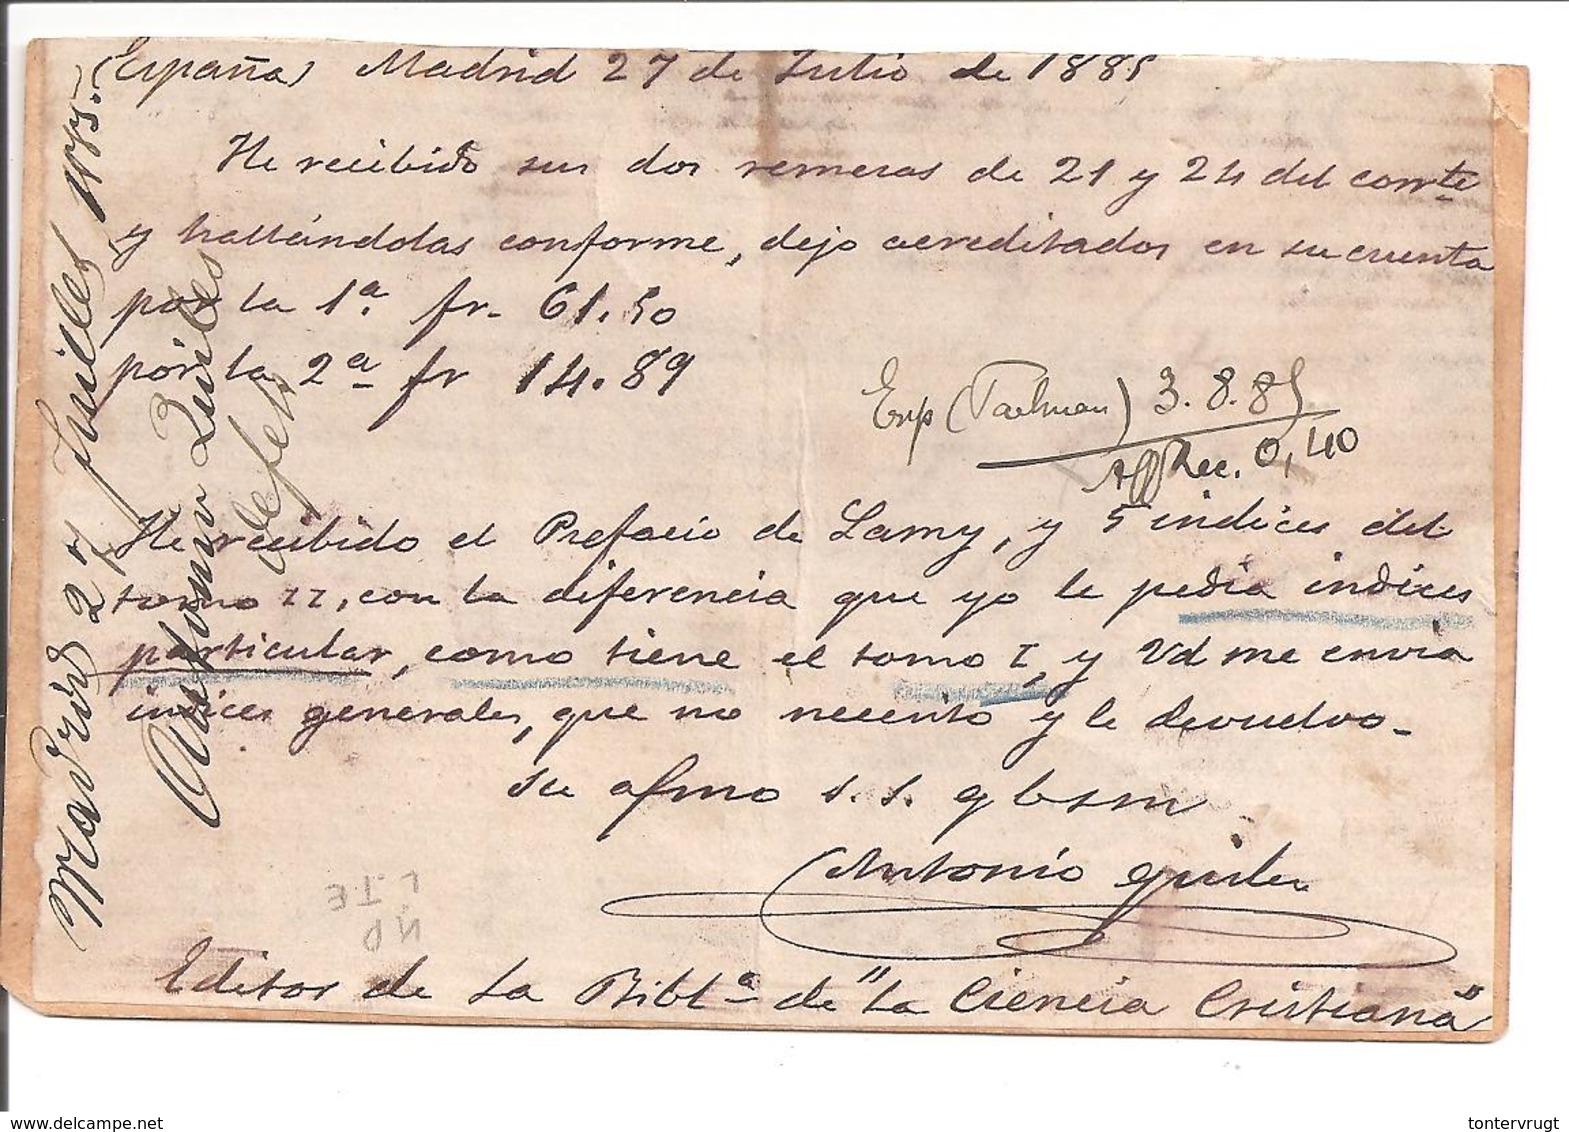 (España) Madrid 27 de Julio de 1885
He recibido sus dos remesas de 21 y 24 del corrte
y hallándolas conforme, dejo acreditados en su cuenta
por la 1ª. fr. 61.50
por la 2ª fr 14.89
Exp ( ) 3.8.85
Aff Rec. 0,40
He recibido el Prefacio de Lamy, y 5 indices del
tomo II, con la diferencia que yo le pedia indices
particular, como tiene el tomo I, y Vd me envia
indices generales, que no necesito y le devuelvo.
Su afmo s. s. q b s m
Antonio Quiles
Editor de la Bibltª de "La Ciencia Cristiana"
Madrid 27 Juillet 1885.
Antonio Quiles
delcampe.net
tontervrugt